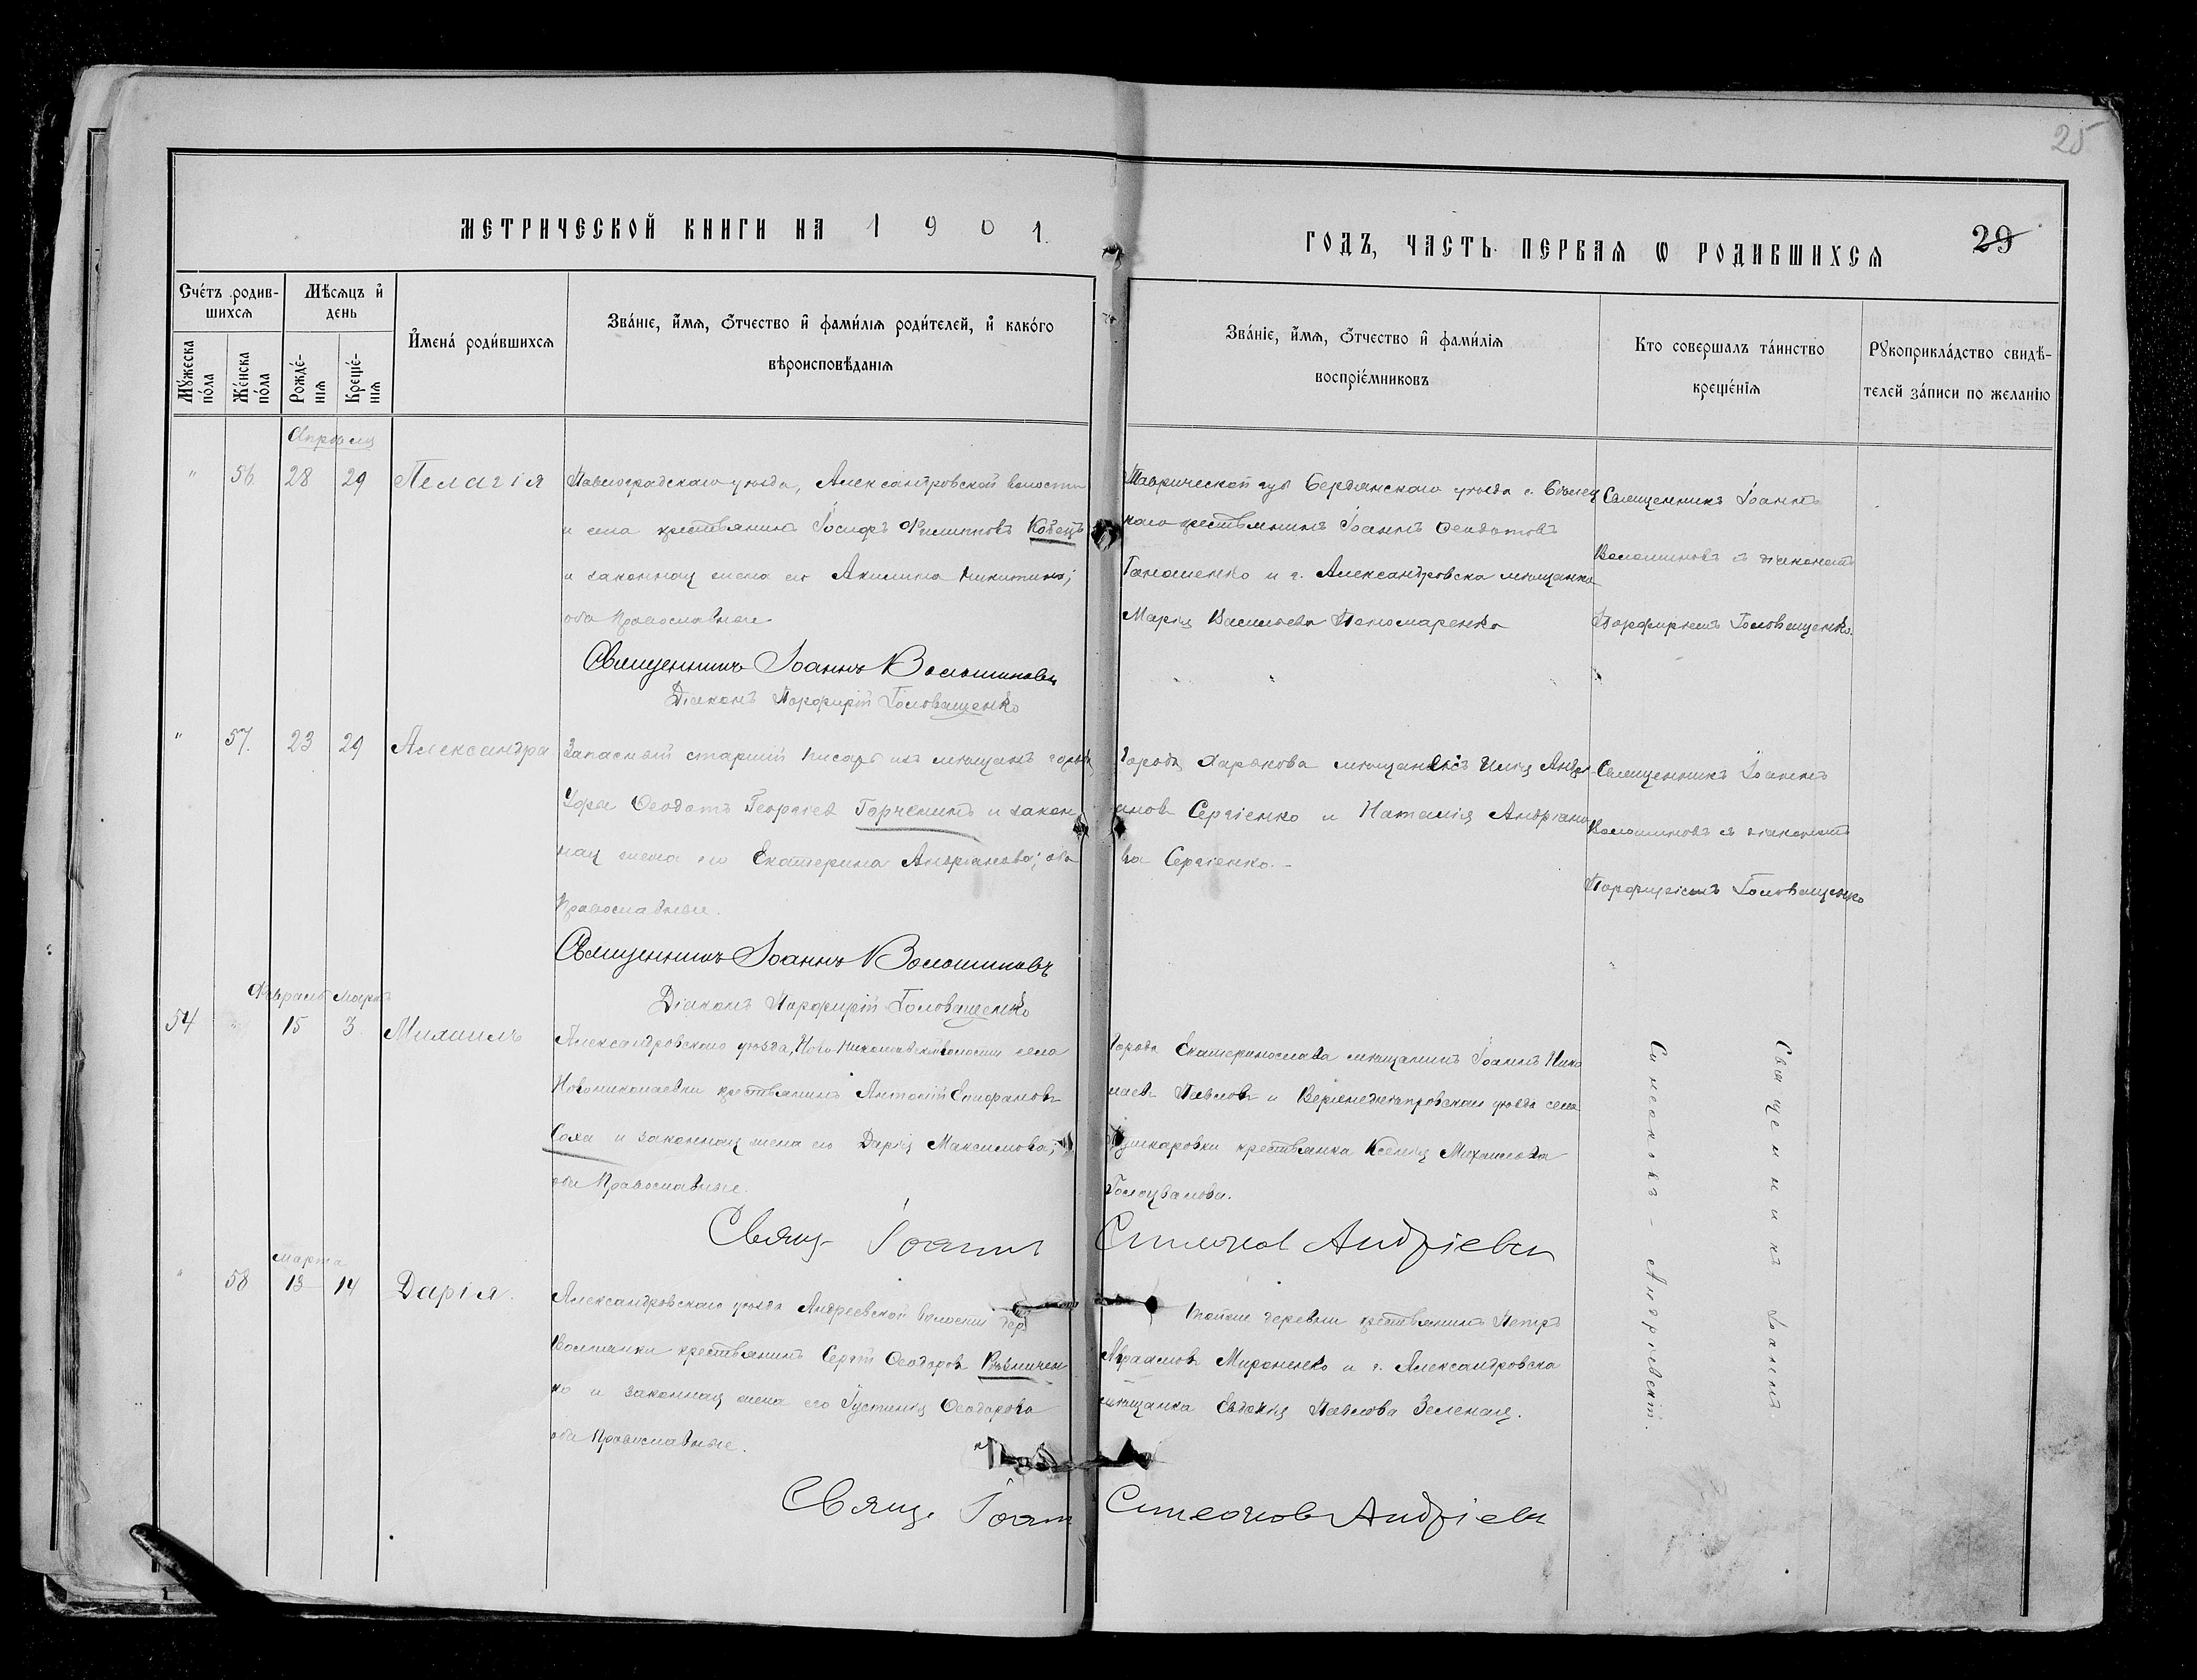 25
МЕТРИЧЕСКОЙ КНИГИ НА 1901.
ГОДЪ, ЧАСТЬ ПЕРВАЯ Ѡ РОДИВШИХСЯ
29
Счетъ родив-
шихся
Мѣсяцъ и
день
Мужеска
пола
Женска
пола
Рожде-
нія
Креще-
нія
Имена родившихся
Званіе, имя, отчество и фамилія родителей, и какого
вѣроисповѣданія
Званіе, имя, отчество и фамилія
воспріемниковъ
Кто совершалъ таинство
крещенія
Рукоприкладство свидѣ-
телей записи по желанію
Апрѣля
" 56. 28 29 Пелагія
Павлоградскаго уѣзда, Александровской волости
и села крестьянинъ Іосифъ Филипповъ Кобецъ
и законная жена его Акилина Никитина;
оба Православные.
Священникъ Іоаннъ Волошиновъ
Діаконъ Порфирій Головащенко
Таврической губ Бердянскаго уѣзда с.
крестьянинъ Іоаннъ Ѳеодотовъ
и г. Александровска мѣщанка
Марія Васильева Пономаренко
Священникъ Іоаннъ
Волошиновъ съ діакономъ
Порфиріемъ Головащенко.
" 57. 23 29 Александра
Запасный старшій писарь изъ мѣщанъ города
Уфы Ѳеодотъ Георгіевъ Горченинъ и закон
ная жена его Екатерина Андріанова; оба
Православные.
Священникъ Іоаннъ Волошиновъ
Діаконъ Порфирій Головащенко
Города Харькова Илія Андрі
ановъ Сергіенко и Наталія Андріано
ва Сергіенко.-
Священникъ Іоаннъ
Волошиновъ съ діакономъ
Порфиріемъ Головащенко
Февраль Мартъ
54 " 15 3 Михаилъ
Александровскаго уѣзда, Ново-Николаевской волости села
Новониколаевки крестьянинъ Антоній Епифановъ
Соха и законная жена его Дарія Максимова;
оба Православные.
Города Екатеринослава мѣщанинъ Іоаннъ Нико
лаевъ Павловъ и Верхнеднѣпровскаго уѣзда села
Пушкаровки крестьянка Ксенія Михаилова
Голоцванова.
Свящ. Іоаннъ Симеоновъ Андріевскі
Священникъ Іоаннъ
Симеоновъ - Андріевскій.
Марта
" 58 13 14 Дарія.
Александровскаго уѣзда Андреевской волости дер
крестьянинъ Сергій Ѳеодоровъ
ко и законная жена его Іустинія Ѳеодорова
оба Православные.
Тойже деревни крестьянинъ Петръ
Авраамовъ Мироненко и г. Александровска
мѣщанка Евдокія Павлова Зеленая.
Свящ. Іоан Симеоновъ Андріевск